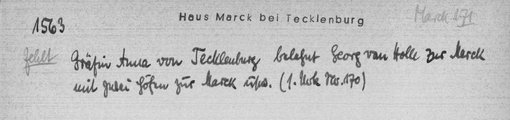 Haus Marck bei Tecklenburg
Marck 171
1563
fehlt
Gräfin Anna von Tecklenburg belehnt Georg van Holle zur Marck
mit zwei Höfen zur Marck usw. (1. Urk Nr. 170)